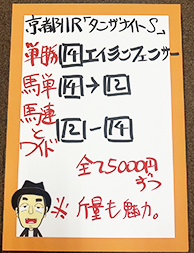 京都11R「タンザナイトS」
単勝 14 エイシンフェンサー
馬単 14→12
馬連とワイド 12-14
全て5000円ずつ
※斤量も魅力。